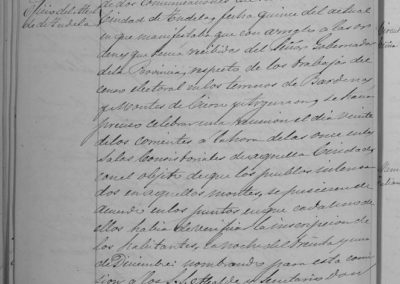 Oficio del Alcal
de de Tudela
de dos Comunicaciones
Ciudad de Tudela, fecha quince del actual
en que manifestaba que con arreglo a las or
denes que tenia recibidas del Señor Gobernador
de la Provincia, respecto de los trabajos del
censo electoral en los terrenos de Bardenas
y Montes de Cierzo y Argenzon, se hacia
preciso celebrar una reunion el dia veinte
de los corrientes a la hora de las once en las
Salas Consistoriales de aquella Ciudad,
con el objeto de que los pueblos interesa
dos en aquellos montes, se pusiesen de
acuerdo en los puntos en que cada uno de
ellos habia de verificar la inscripcion de
los habitantes, la noche del treinta y uno
de Diciembre: nombrando para esta co
mision a los Alcalde y Secretario Don